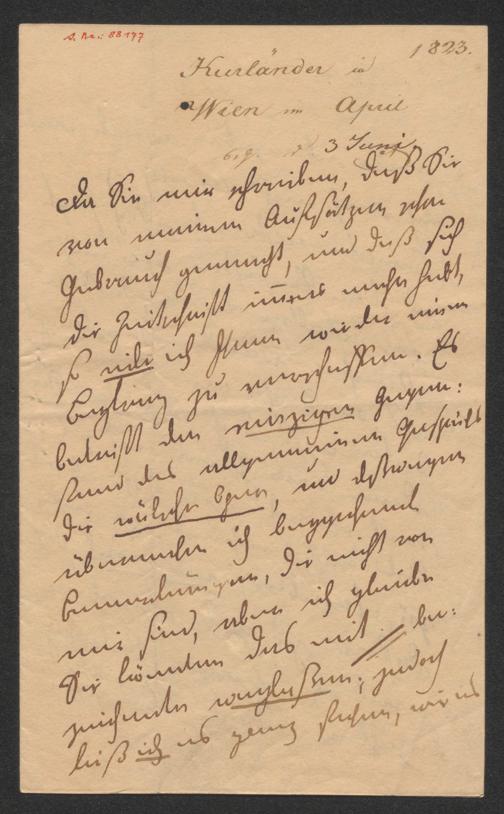 S. Nr.: 88177
1823.
Kurländer in
Wien im April
3 Juni
Da Sie mir schreiben, daß Sie
von meinen Aufsätzen schon
Gebrauch gemacht, und daß sich
die Zeitschrift immer mehr hebt,
so eile ich Ihnen wieder einen
Beytrag zu verschaffen. Es
betrifft den einzigen Gegen:
stand des allgemeinen Gesprächs
die wälsche Oper, und deßwegen
übermache ich beygehend
Bemerkungen, die nicht von
mir sind, aber ich glaube
Sie könnten das mit // be:
zeichnete weglaßen, jedoch
ließ ich es ganz stehen, wie es